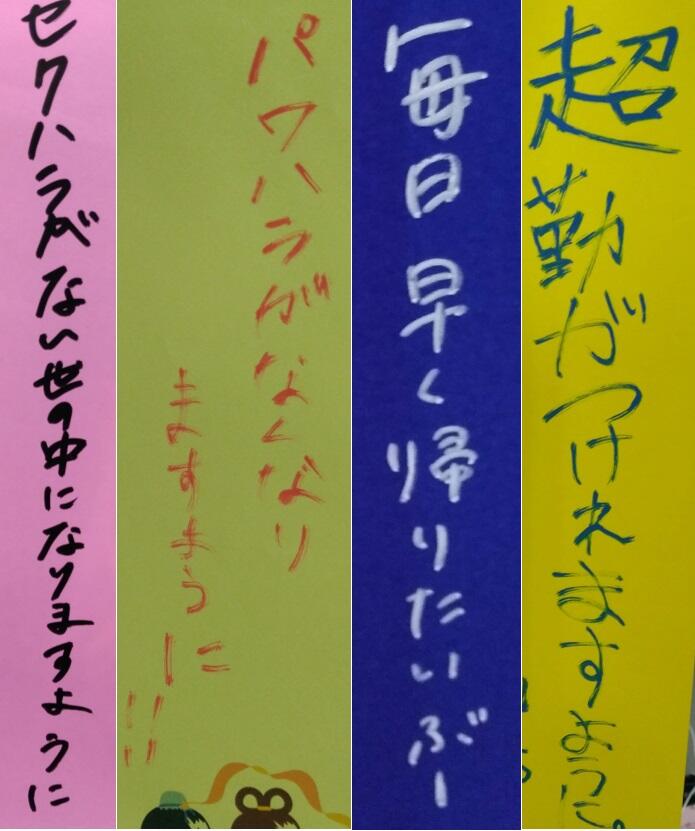 セクハラがない世の中になりますように
パワハラがなくなり
ますように
!!
「毎日 早く帰りたいぶー
超勤がつけれますように